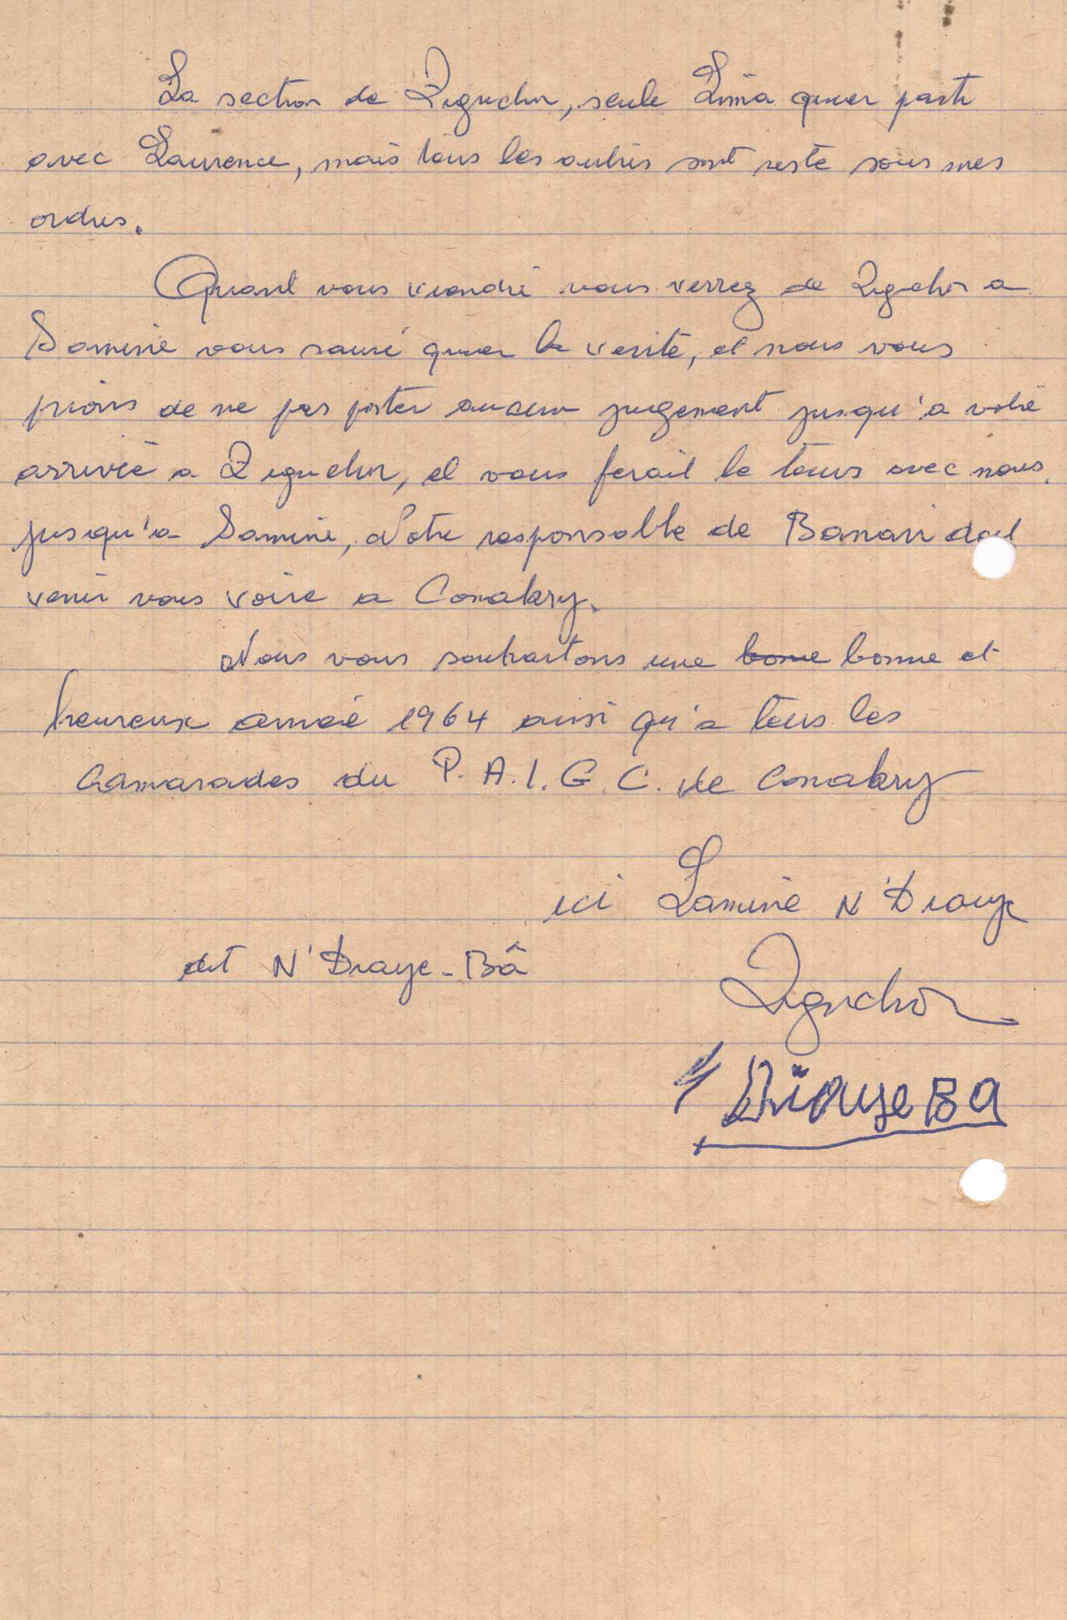 La section de Ziguchor, seule Lima quier parti
avec Laurence, mais tous les autris sont reste sous mes
ordres.
Quant vous viendré vous verrez de Ziguchor a
Saminé vous sauré quier la verité, et nous vous
prions de ne pas porter aucun jugement jusqu'a votre
arrivée a Ziguchor, et vous ferait le tours avec nous,
jusqu'a Saminé, Notre responsable de Banari doit
venir vous voire a Conakry.
Nous vous souhaitons une bonne bonne et
heureux année 1964 ainsi qu'a tous les
Camarades du P.A.I.G.C. de Conakry
ici Lamine N'Diaye
dit N'Diaye-Bâ
Ziguchor
Diaye Ba